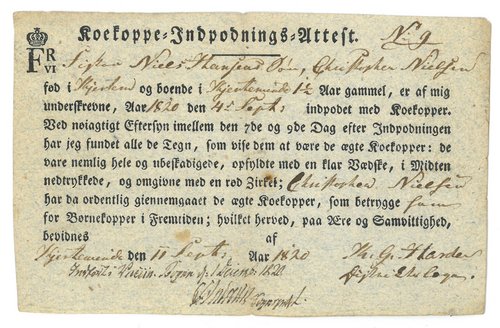 Koekoppe-Indpodnings-Attest. No 9
FR
VI
Niels Hansens Søn, Christopher Nielsen
fød i Kjertem og boende i Kjerteminde 1½ Aar gammel, er af mig
underskrevne, Aar 1820 den 4de Septb indpodet med Koekopper.
Ved nøiagtigt Eftersyn imellem den 7de og 9de Dag efter Indpodningen
har jeg fundet alle de Tegn, som vise dem at være de ægte Koekopper: de
vare nemlig hele og ubeskadigede, opfyldte med en klar Vædske, i Midten
nedtrykkede, og omgivne med en rød Zirkel; Christopher Nielsen
har da ordentlig giennemgaaet de ægte Koekopper, som betrygge ham
for Børnekopper i Fremtiden; hvilket herved, paa Ære og Samvittighed,
bevidnes af
Kjerteminde den 11 Septb. Aar 1820
1820